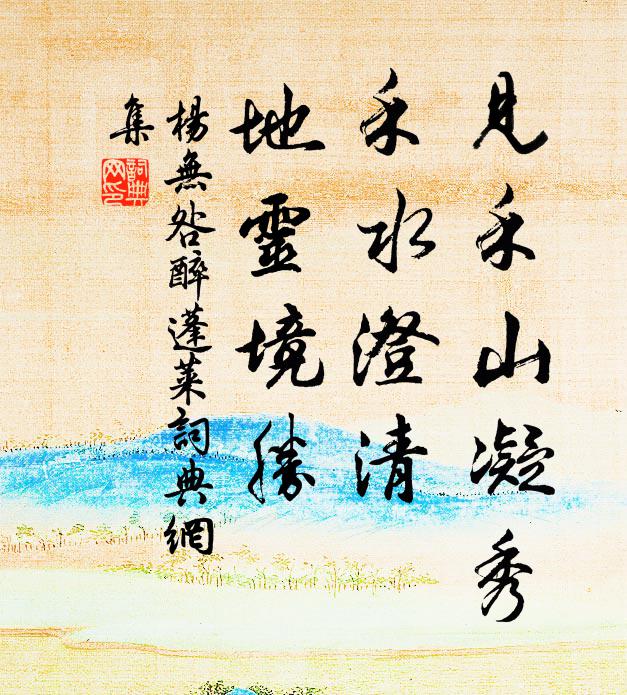 見禾山凝秀
禾水澄清
地靈境勝
楊無咎醉蓬萊詞典網
集
詞典網印